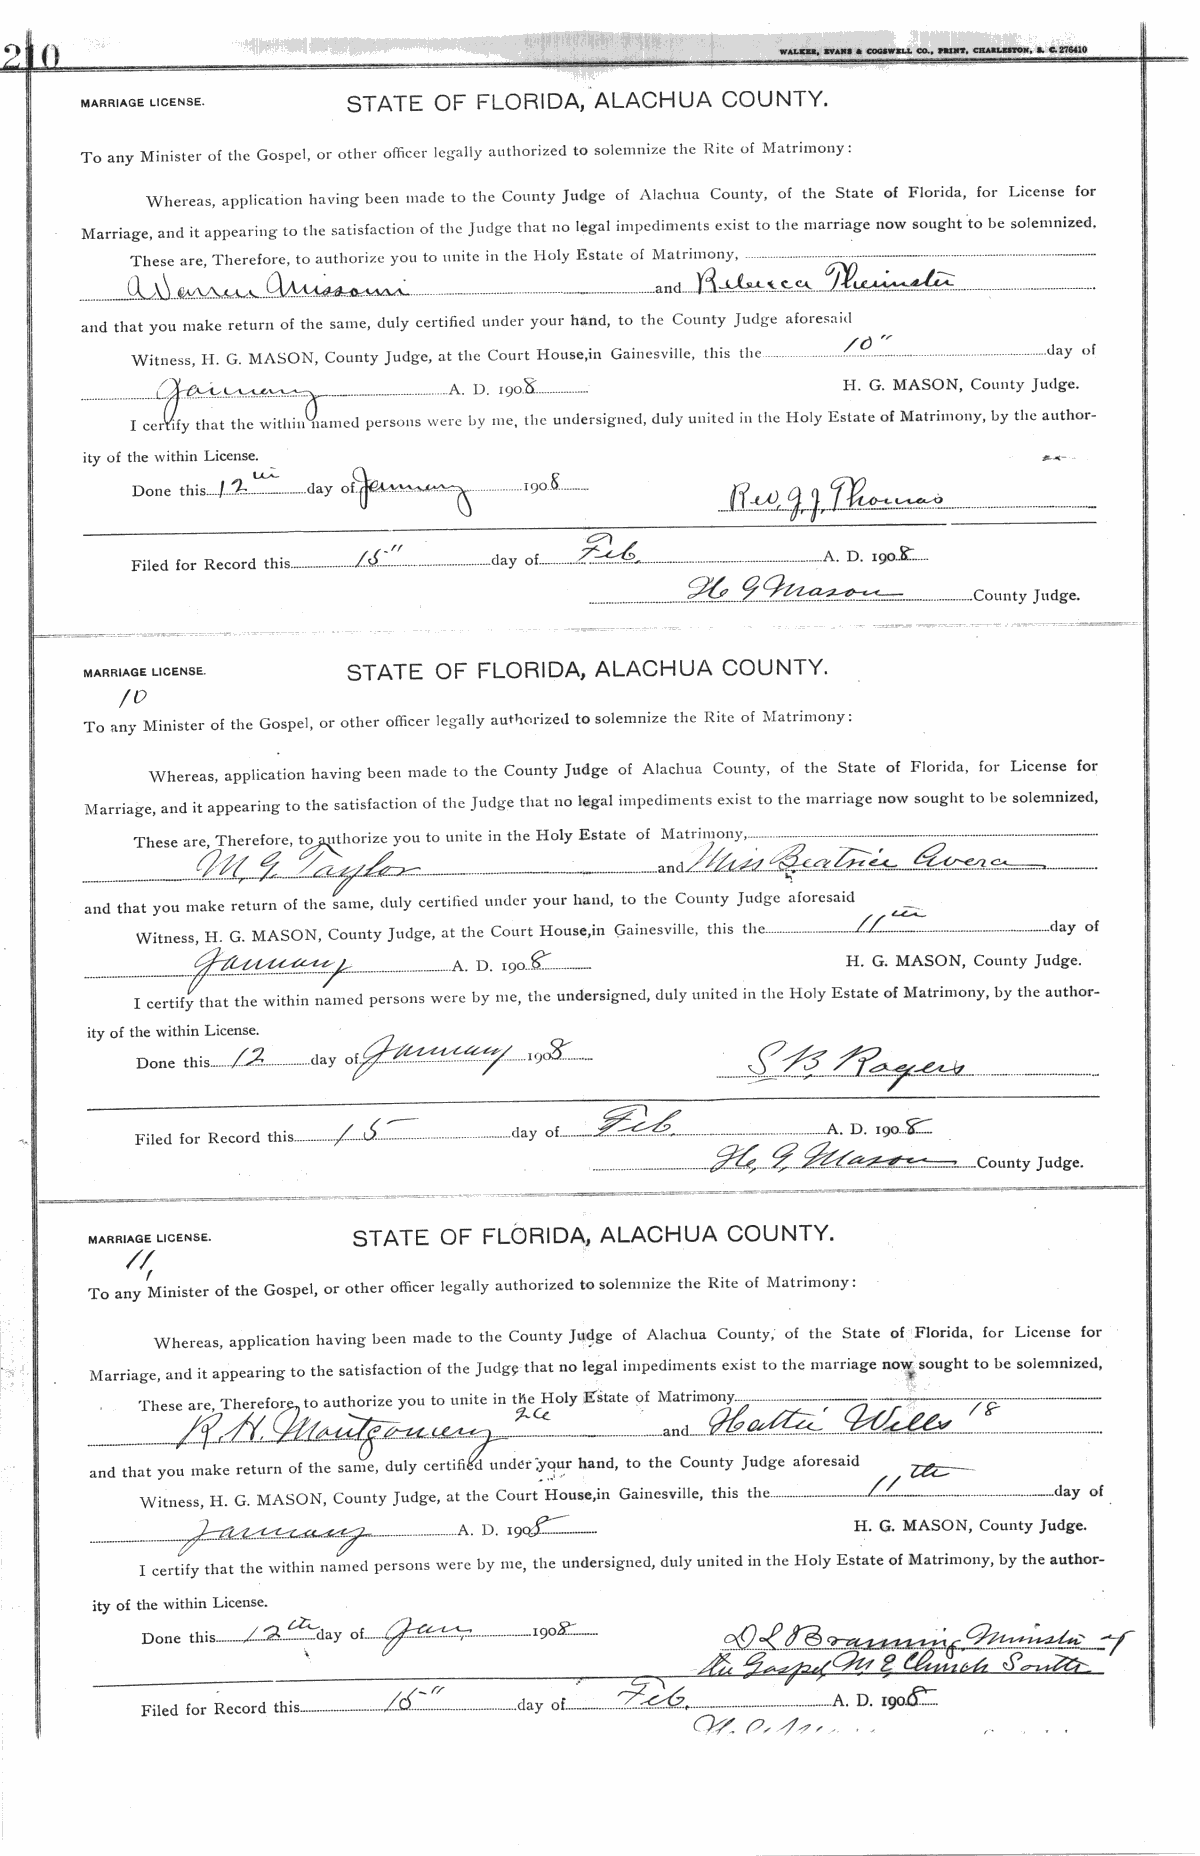 210
WALKER, EVANS & COGSWELL CO., PRINT, CHARLESTON, S. C. 276410
MARRIAGE LICENSE. STATE OF FLORIDA, ALACHUA COUNTY.
To any Minister of the Gospel, or other officer legally authorized to solemnize the Rite of Matrimony:
Whereas, application having been made to the County Judge of Alachua County, of the State of Florida, for License for
Marriage, and it appearing to the satisfaction of the Judge that no legal impediments exist to the marriage now sought to be solemnized.
These are, Therefore, to authorize you to unite in the Holy Estate of Matrimony,
Warren Missouri and Rebecca
and that you make return of the same, duly certified under your hand, to the County Judge aforesaid
Witness, H. G. MASON, County Judge, at the Court House, in Gainesville, this the 10" day of
January A. D. 1908 H. G. MASON, County Judge.
I certify that the within named persons were by me, the undersigned, duly united in the Holy Estate of Matrimony, by the author-
ity of the within License.
Done this 12th day of January 1908 Rev. J. J. Thomas
Filed for Record this 15" day of Feb. A. D. 1908
H G Mason County Judge.
MARRIAGE LICENSE. STATE OF FLORIDA, ALACHUA COUNTY.
10
To any Minister of the Gospel, or other officer legally authorized to solemnize the Rite of Matrimony:
Whereas, application having been made to the County Judge of Alachua County, of the State of Florida, for License for
Marriage, and it appearing to the satisfaction of the Judge that no legal impediments exist to the marriage now sought to be solemnized,
These are, Therefore, to authorize you to unite in the Holy Estate of Matrimony,
M. G. Taylor and Miss Beatrice Avera
and that you make return of the same, duly certified under your hand, to the County Judge aforesaid
Witness, H. G. MASON, County Judge, at the Court House, in Gainesville, this the 11th day of
January A. D. 1908 H. G. MASON, County Judge.
I certify that the within named persons were by me, the undersigned, duly united in the Holy Estate of Matrimony, by the author-
ity of the within License.
Done this 12 day of January 1908 S. B. Rogers
Filed for Record this 15 day of Feb. A. D. 1908
H. G. Mason County Judge.
MARRIAGE LICENSE. STATE OF FLORIDA, ALACHUA COUNTY.
11
To any Minister of the Gospel, or other officer legally authorized to solemnize the Rite of Matrimony:
Whereas, application having been made to the County Judge of Alachua County, of the State of Florida, for License for
Marriage, and it appearing to the satisfaction of the Judge that no legal impediments exist to the marriage now sought to be solemnized,
These are, Therefore, to authorize you to unite in the Holy Estate of Matrimony
R. H. Montgomery and Hattie Wells 18
and that you make return of the same, duly certified under your hand, to the County Judge aforesaid
Witness, H. G. MASON, County Judge, at the Court House, in Gainesville, this the 11th day of
January A. D. 1908 H. G. MASON, County Judge.
I certify that the within named persons were by me, the undersigned, duly united in the Holy Estate of Matrimony, by the author-
ity of the within License.
Done this 12th day of Jan. 1908 D L Branning Minister of
the Gospel, M. E. Church South
Filed for Record this 15" day of Feb. A. D. 1908